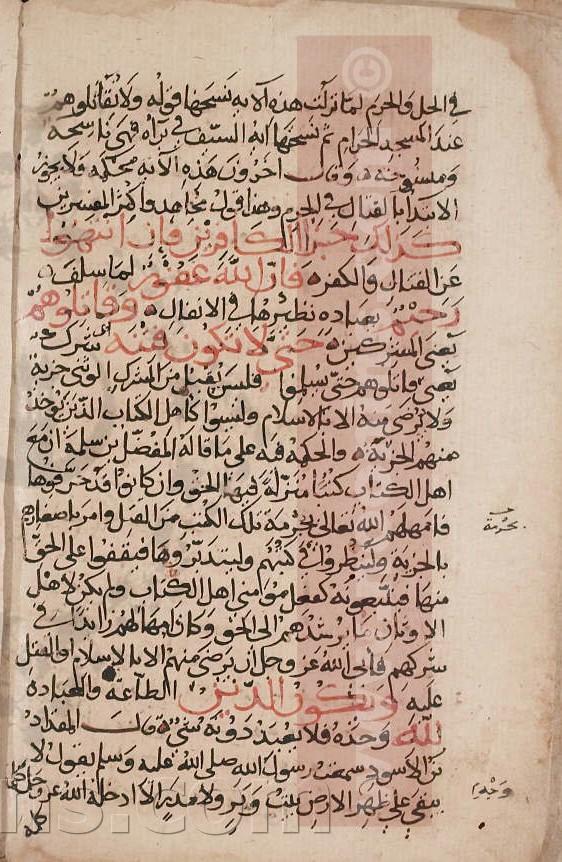 في الحل والحرم لما نزلت هذه الآية نسختها قوله ولا تقاتلوهم
عند المسجد الحرام ثم نسختها آية السيف في براءة فهي ناسخة
ومنسوخة وقال آخرون هذه الآية محكمة ولا يجوز
الابتداء بالقتال في الحرم وهذا قول مجاهد وأكثر المفسرين
كذلك جزاء الكافرين فإن انتهوا
عن القتال والكفر فإن الله غفور لما سلف
رحيم بعباده نظيرها في الانفال وقاتلوهم
يعني المشركين حتى لا تكون فتنة أي شرك
يعني قاتلوهم حتى يسلموا فليس يقبل من المشرك الوثني جزية
ولا يرضى منه الا بالاسلام وليسوا كأهل الكتاب الذين يؤخذ
منهم الجزية والحكمة فيه على ما قاله المفضل بن سلمة ان مع
اهل الكتاب كتبا منزلة فيها الحق وان كانوا قد حرفوها
فأمهلهم الله تعالى بحرمة تلك الكتب من القتل وامر باصغارهم
بحرمة
بالجزية ولينظروا في كتبهم وليتدبروها فيقفوا على الحق
منها فيتبعونه كفعل مؤمني اهل الكتاب ولم يكن لاهل
الاوثان ما يرشدهم الى الحق وكان امهالهم زائدا في
شركهم فأبى الله عز وجل ان يرضى منهم الا بالاسلام او القتل
عليه ويكون الدين الطاعة والعبادة
لله وحده فلا يعبد دونه شيء قال المقداد
بن الاسود سمعت رسول الله صلى الله عليه وسلم يقول لا
يبقى على ظهر الارض بيت وبر ولا مدر الا ادخله الله عز وجل
كلمة
ns.com